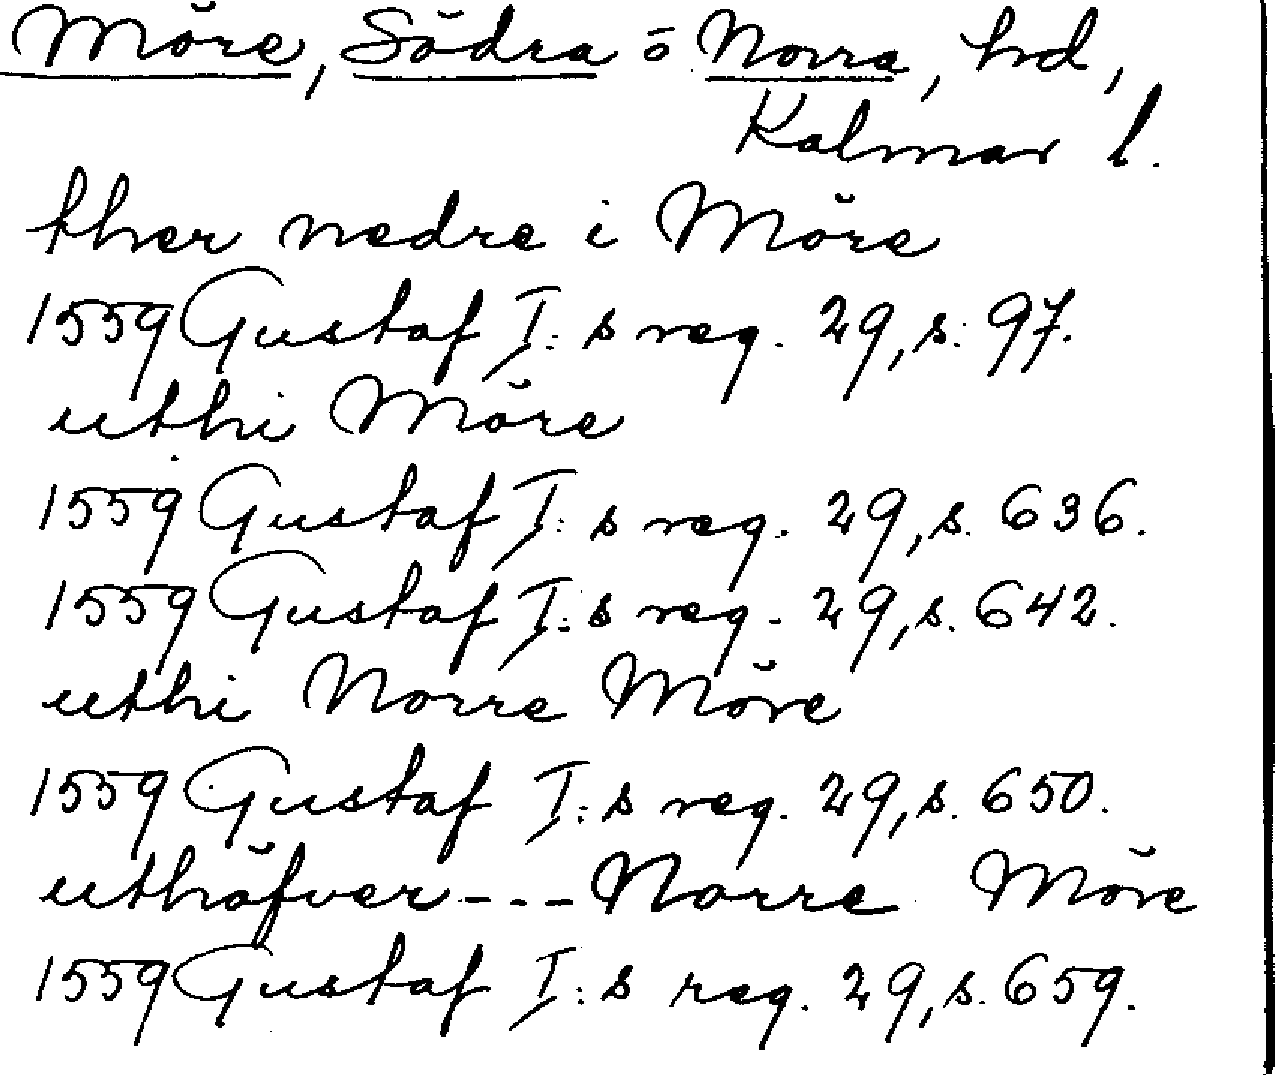 Möre, Södra o Norra, hd,
Kalmar l.
ther nedre i Möre
1559 Gustaf I:s reg. 29, s. 97.
uthi Möre
1559 Gustaf I:s reg. 29, s. 636.
1559 Gustaf I:s reg. 29, s. 642.
uthi Norre Möre
1559 Gustaf I:s reg. 29, s. 650.
uthöfver --- Norre Möre
1559 Gustaf I:s reg. 29, s. 659.